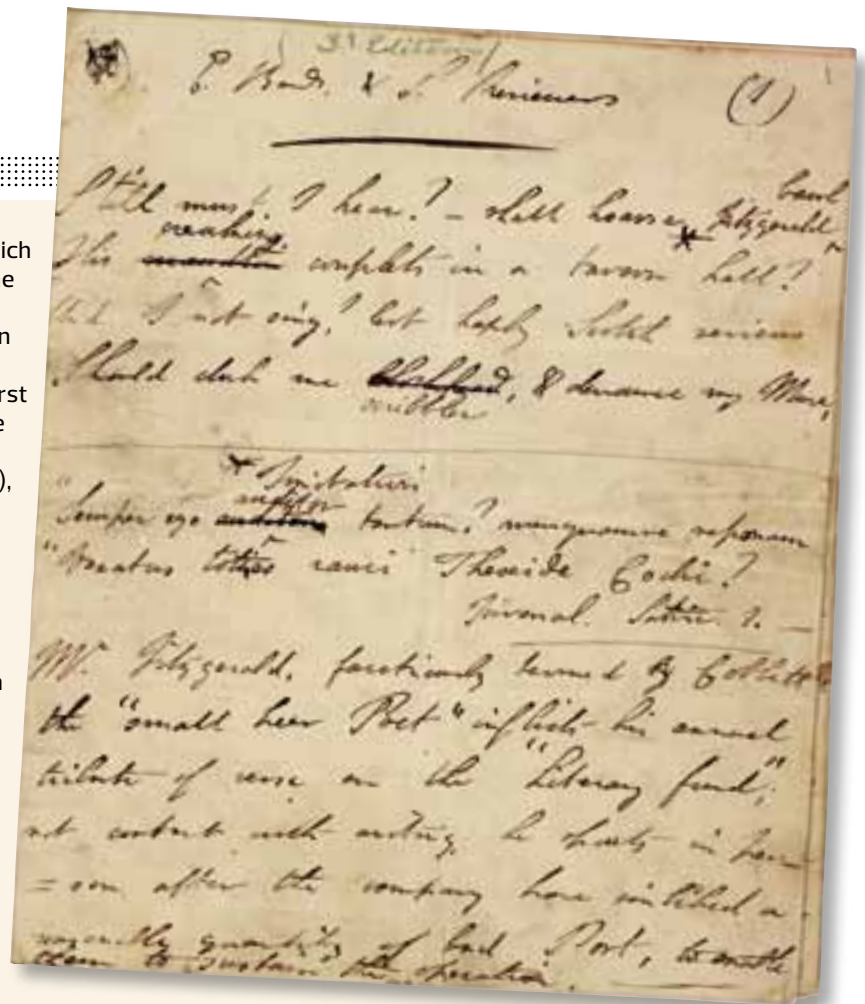 ich
e
n
rst
e
),
n
(3d Edition)
E. Bards. & S. Reviewers (1)
Still must I hear? – shall hoarse * Fitzgerald bawl
His creaking couplets in a tavern hall?
I not sing, lest haply Scotch reviews
Should dub me scribbler, & denounce my Muse,
* Imitation
"Semper ego auditor tantum? nunquamne reponam
"Vexatus toties rauci Theseide Codri?
Juvenal. Satire 1. —
Mr. Fitzgerald, facetiously termed by Cobbett
the "small beer Poet" inflicts his annual
tribute of verse on the "Literary fund,"
not content with writing he spouts in per=
=son after the company have imbibed a
quantity of bad Port, to enable
them to sustain the operation.